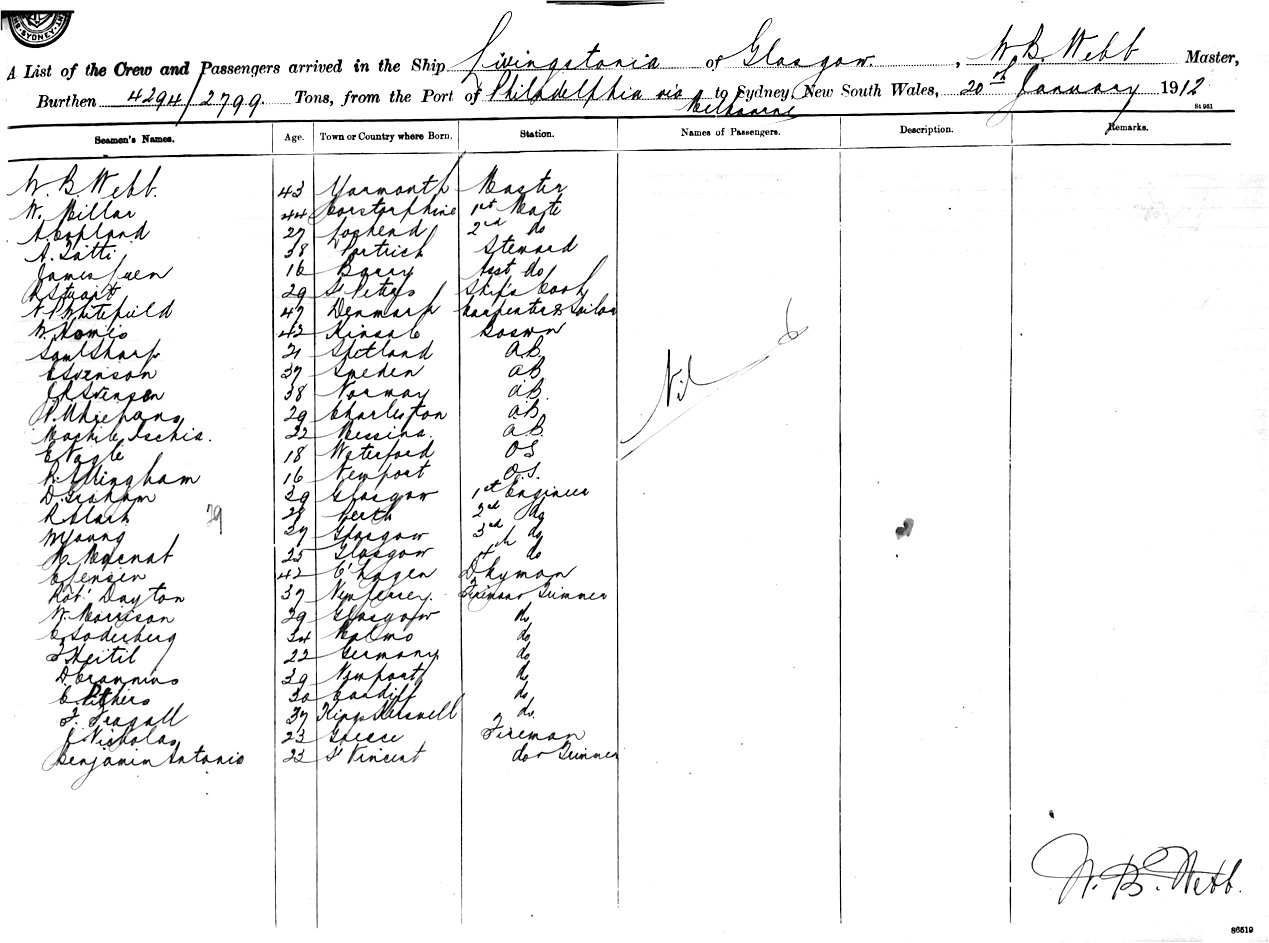 SYDNEY
A List of the Crew and Passengers arrived in the Ship Livingstonia of Glasgow. , W. B. Webb Master,
Burthen 4294/2799. Tons, from the Port of Philadelphia via Melbourne to Sydney, New South Wales, 20th January 1912
St 961
Seamen's Names. Age. Town or Country where Born. Station. Names of Passengers. Description. Remarks.
W. B. Webb. 43 Yarmouth Master
W. Millar 44 Corstorphine 1st Mate
A. Copland 27 Lochend 2nd do
A. Tatti 38 Partick Steward
James 16 Barry Asst do
R Stuart 29 St Peters Ship's Cook
N P Whitefield 47 Denmark Carpenter & Sailor
W. 42 Kinsale Boswn
Saml Sharp 21 Shetland A.B.
C Svenson 37 Sweden AB
Svensen 38 Norway A.B.
29 Charleston A.B.
Ischia. 22 Messina. A.B.
E Nagle 18 Waterford OS
R. Ellingham 16 Newport O.S.
D. Graham 39 Glasgow 1st Engineer
R Clark 29 28 Perth 2nd do
W Young 37 Glasgow 3rd do
25 Glasgow 4th do
C Jensen 42 C'hagen Dkyman
Robt Dayton 37 New Jersey. Fireman & Trimmer
W. Morrison 29 Glasgow do
C Soderberg 34 Malmo do
22 Germany do
D Crannins 39 Newport do
C Pethers 30 Cardiff do
F. Teagall 37 Kings Kerswell do.
J Nicholas 23 Greece Fireman
Benjamin Antonio 22 St Vincent do & Trimmer
Nil
W. B. Webb.
86519